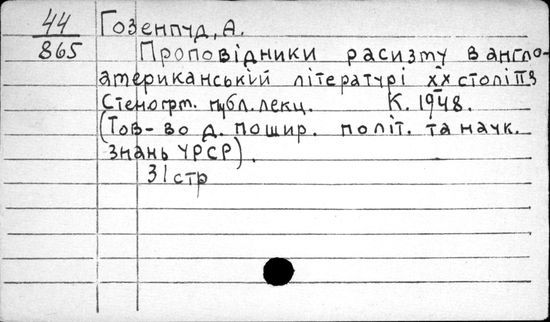 44 Гозенпуд, А.
865 Проповідники расизму в англо-
американській літературі XX століття
Стеногрм. публ. лекц. К. 1948.
(Тов-во д. пошир. політ. та наук.
знань УРСР).
31 стр